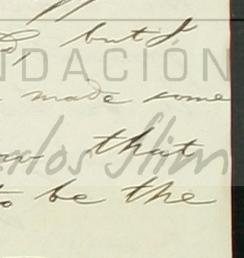 but I
NDACIÓN
made some
that
arlos Slim
to be the